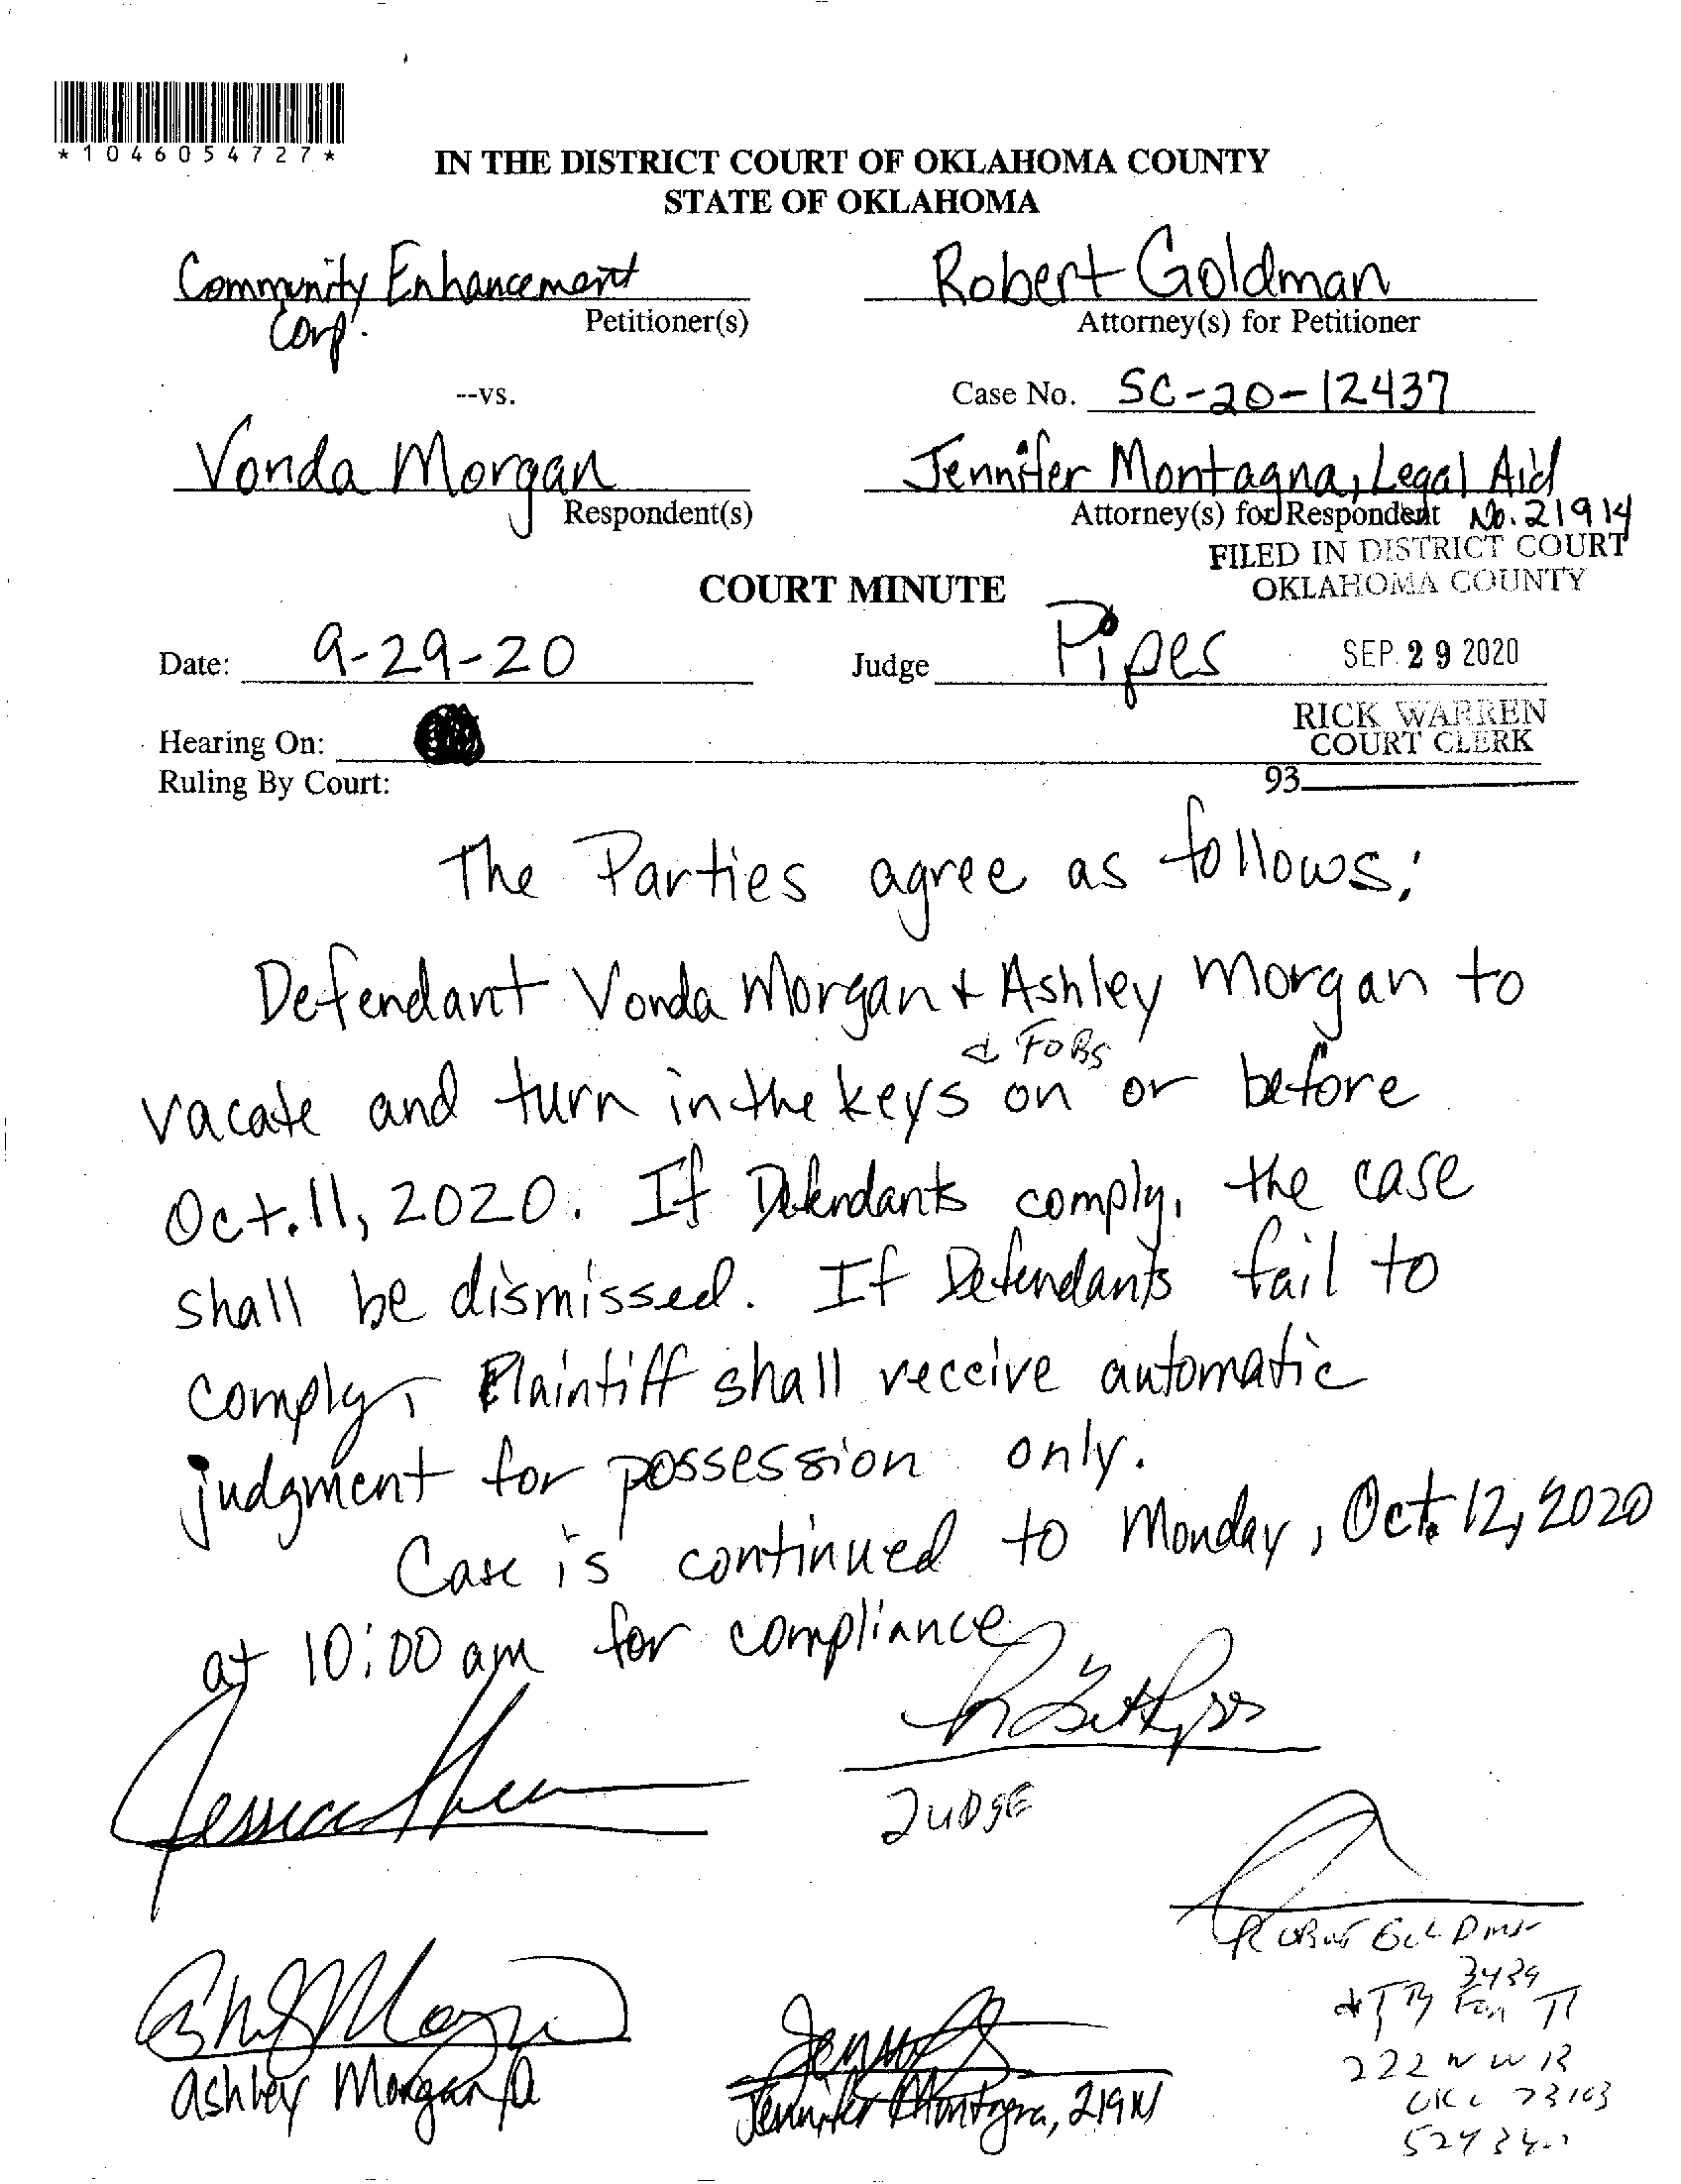 *1046054727*
IN THE DISTRICT COURT OF OKLAHOMA COUNTY
STATE OF OKLAHOMA
Community Enhancement
Corp.
Petitioner(s)
Robert Goldman
Attorney(s) for Petitioner
--vs.
Case No. SC-20-12437
Vonda Morgan
Respondent(s)
Jennifer Montagna, Legal Aid
Attorney(s) for Respondent No. 21914
FILED IN DISTRICT COURT
OKLAHOMA COUNTY
COURT MINUTE
Date: 9-29-20
Judge Pipes
SEP 29 2020
RICK WARREN
COURT CLERK
Hearing On:
Ruling By Court:
93
The Parties agree as follows:
Defendant Vonda Morgan & Ashley Morgan to
& FOBS
vacate and turn in the keys on or before
Oct. 11, 2020. If Defendants comply, the case
shall be dismissed. If Defendants fail to
comply, Plaintiff shall receive automatic
judgment for possession only.
Case is continued to Monday, Oct. 12, 2020
at 10:00 am for compliance
Jessica
JUDGE
Ashley Morgan
Jennifer Montagna, 21914
3439
222 NW 13
OKC 73103